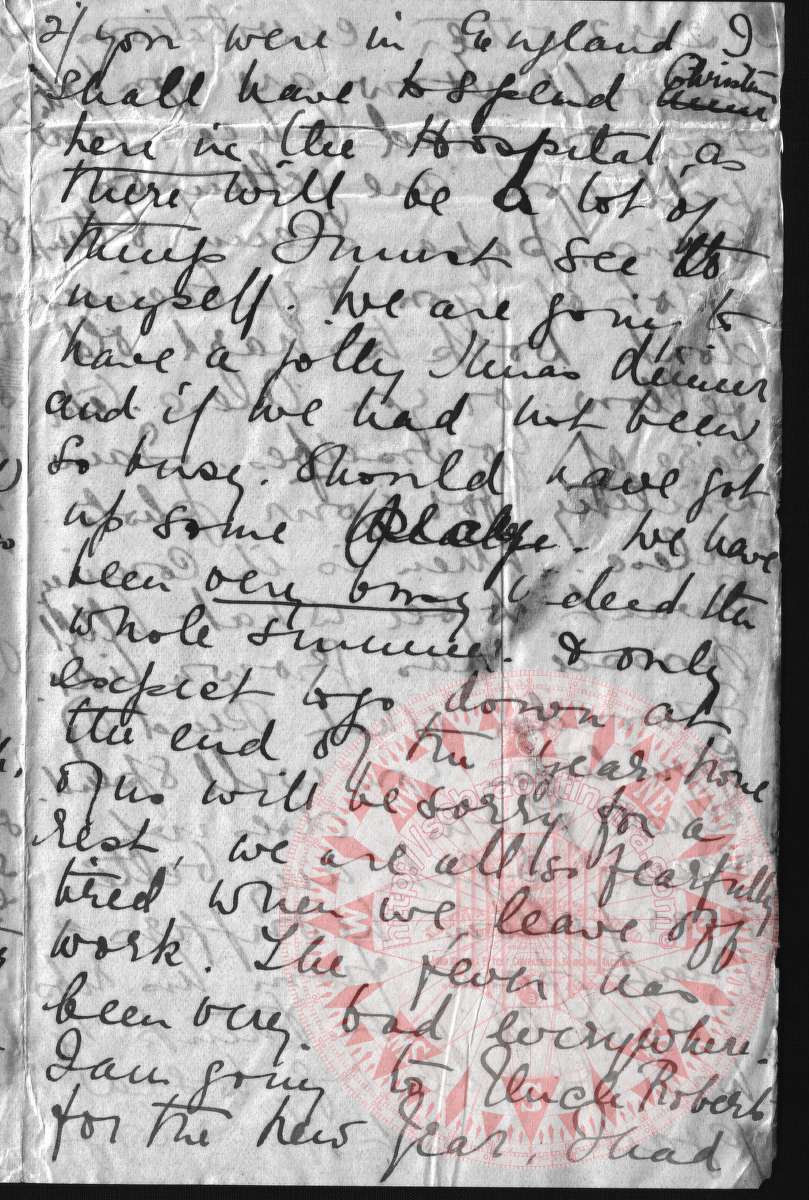 2/ you were in England I
shall have to spend Christmas
here in the Hospital, as
there will be a lot of
things I must see to
myself. We are going to
have a jolly Xmas dinner
and if we had not been
so busy. Should have got
up some . We have
been very busy indeed the
whole summer. & only
expect to go down at
the end of the year. None
of us will be sorry for a
rest, we are all so fearfully
tired when we leave off
work. The fever has
been very bad everywhere.
I am going to Uncle Robert
for the New Year. I had
http://sobraontindra.com